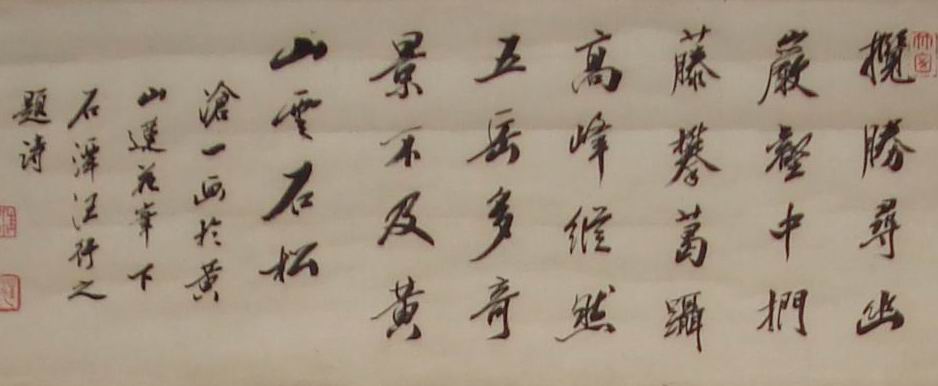 攬勝尋幽
巖壑中捫
藤攀葛躡
高峰縱然
五岳多奇
景不及黃
山雲石松
滄一畫於黃
山蓮花峯下
石潭汪行之
題詩